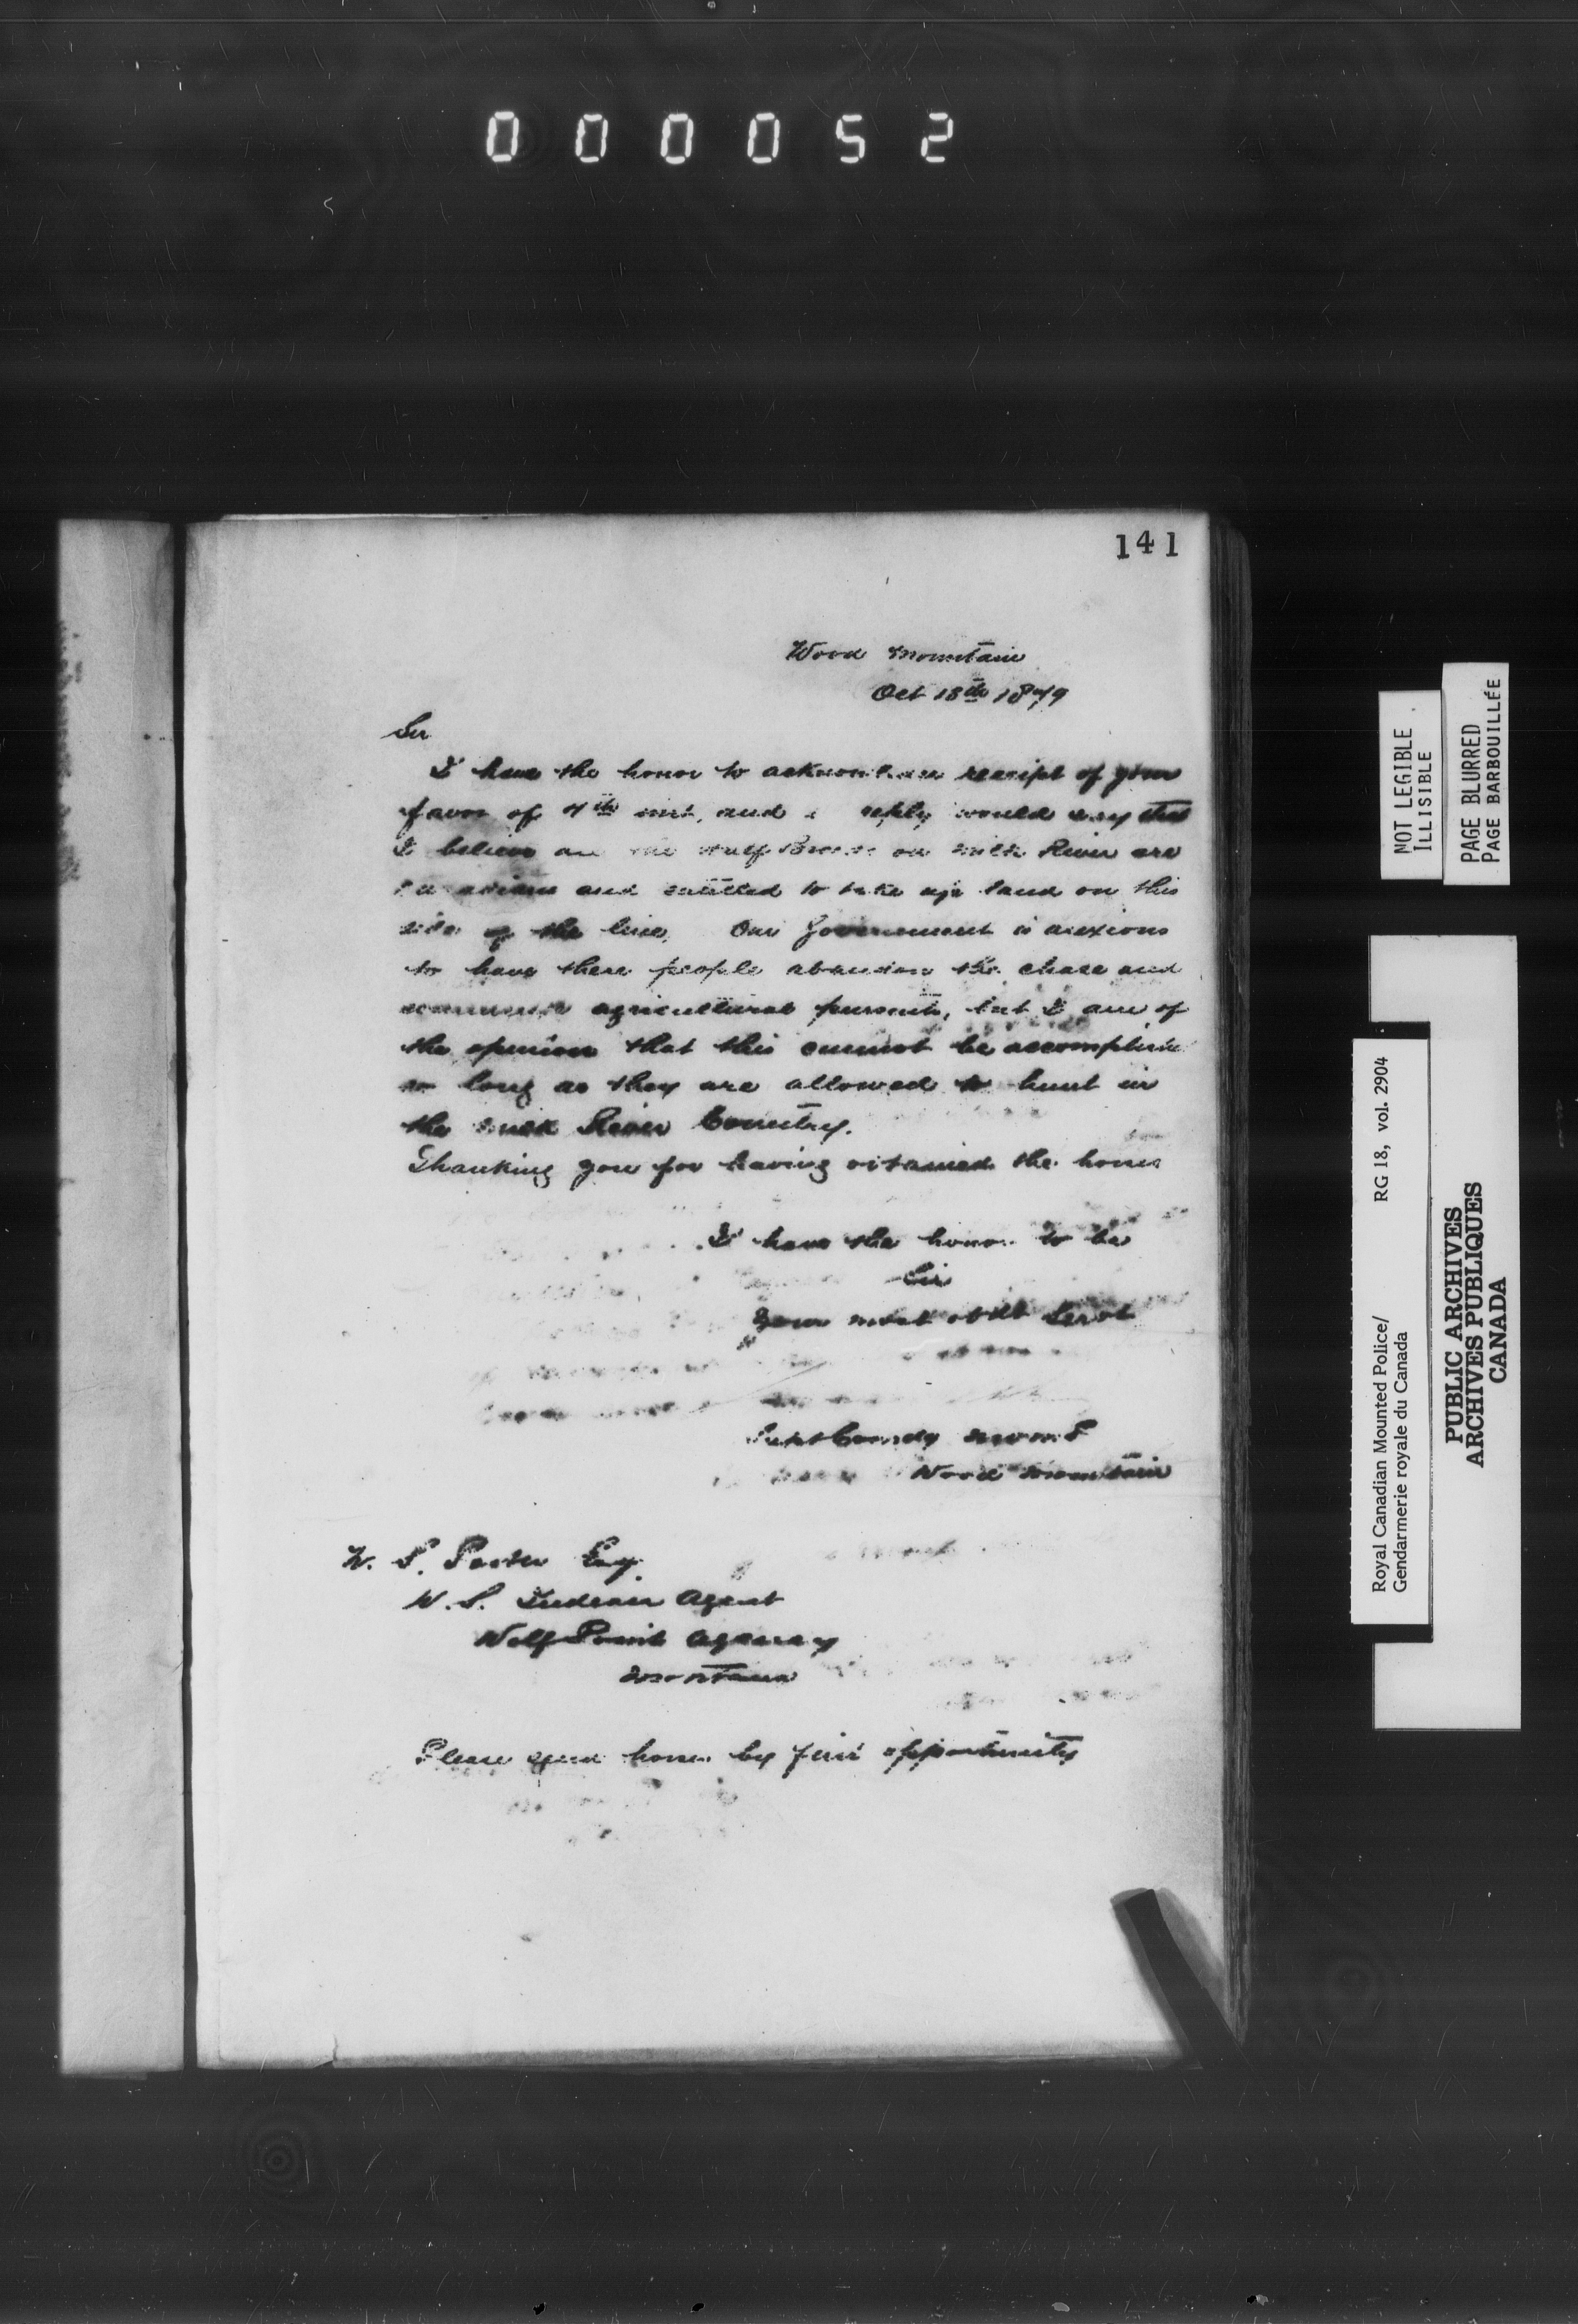 000052
141
Wood Mountain
Oct 18th 1879
Sir
I have the honor to acknowledge receipt of your
favor of 4th inst, and reply would say that
I believe all the Half Breeds on Milk River are
Canadians and entitled to take up land on this
side of the line. Our Government is anxious
to have these people abandon the chase and
commence agricultural pursuits, but I am of
the opinion that this cannot be accomplished
so long as they are allowed to hunt in
the Milk River Country.
Thanking you for having obtained the horse
I have the honor to be
Sir
Your most obdt Servt
Supt Comdg N.W.M.P
Wood Mountain
W. Porter Esq.
U.S. Indian Agent
Wolf Point Agency
Montana
Please send horse by first opportunity
NOT LEGIBLE
ILLISIBLE
PAGE BLURRED
PAGE BARBOUILLÉE
Royal Canadian Mounted Police/ RG 18, vol. 2904
Gendarmerie royale du Canada
PUBLIC ARCHIVES
ARCHIVES PUBLIQUES
CANADA